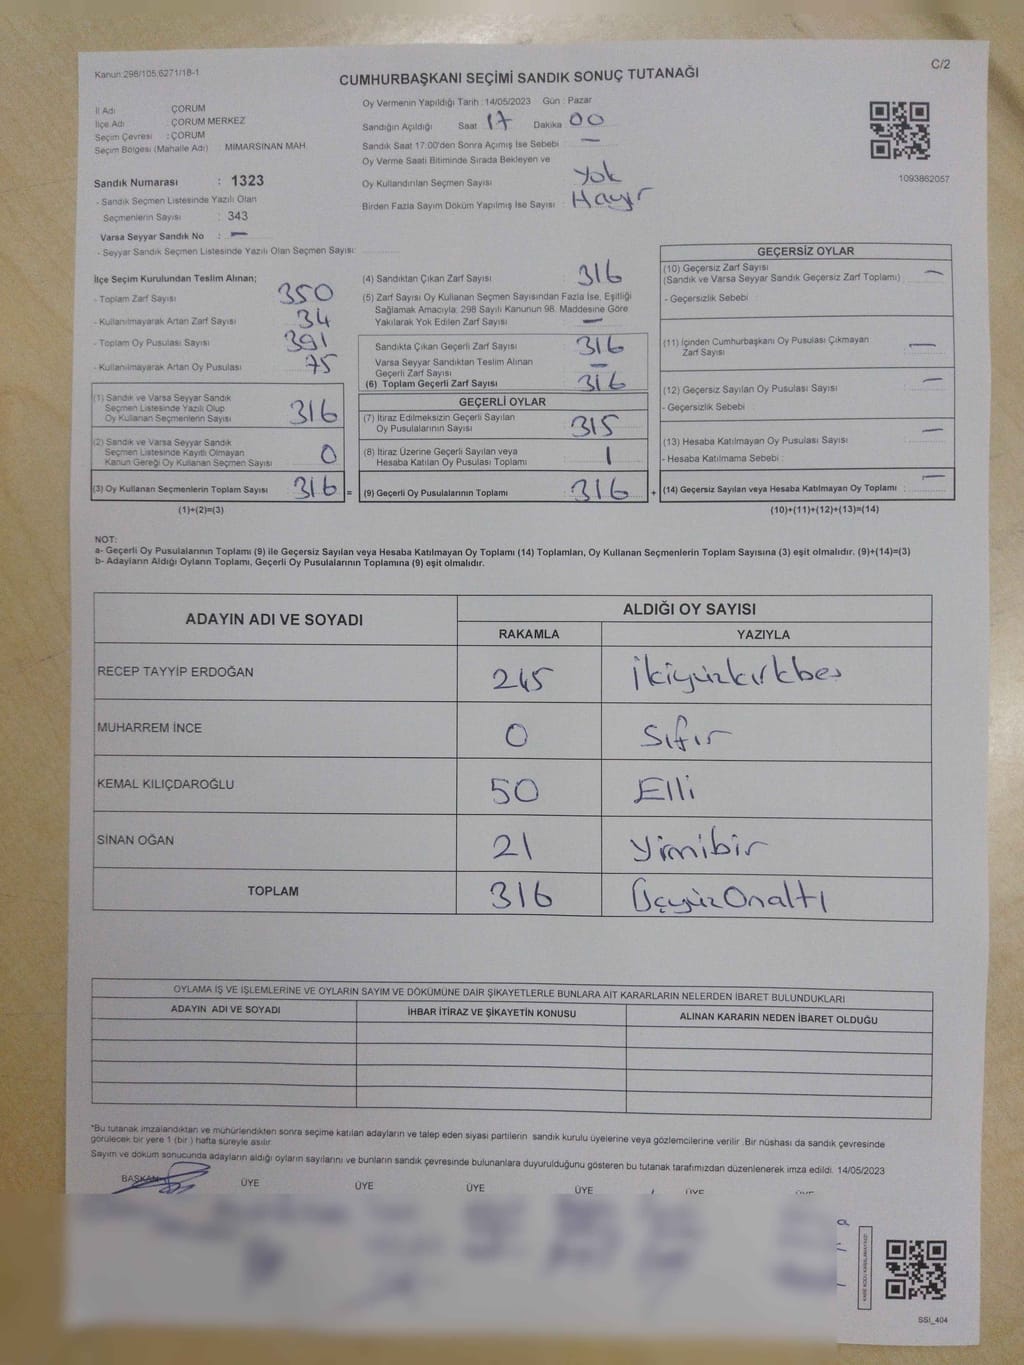 Kanun:298/105,6271/18-1
C/2
CUMHURBAŞKANI SEÇİMİ SANDIK SONUÇ TUTANAĞI
İl Adı : ÇORUM
İlçe Adı : ÇORUM MERKEZ
Seçim Çevresi : ÇORUM
Seçim Bölgesi (Mahalle Adı) MİMARSİNAN MAH.
Sandık Numarası : 1323
- Sandık Seçmen Listesinde Yazılı Olan
Seçmenlerin Sayısı : 343
Varsa Seyyar Sandık No : —
- Seyyar Sandık Seçmen Listesinde Yazılı Olan Seçmen Sayısı:
Oy Vermenin Yapıldığı Tarih : 14/05/2023 Gün : Pazar
Sandığın Açıldığı Saat 17 Dakika 00
Sandık Saat 17.00'den Sonra Açımış İse Sebebi —
Oy Verme Saati Bitiminde Sırada Bekleyen ve
Oy Kullandırılan Seçmen Sayısı Yok
Birden Fazla Sayım Döküm Yapılmış İse Sayısı : Hayır
1093862057
İlçe Seçim Kurulundan Teslim Alınan;
- Toplam Zarf Sayısı 350
- Kullanılmayarak Artan Zarf Sayısı 34
- Toplam Oy Pusulası Sayısı 391
- Kullanılmayarak Artan Oy Pusulası 75
(1) Sandık ve Varsa Seyyar Sandık
Seçmen Listesinde Yazılı Olup
Oy Kullanan Seçmenlerin Sayısı 316
(2) Sandık ve Varsa Seyyar Sandık
Seçmen Listesinde Kayıtlı Olmayan
Kanun Gereği Oy Kullanan Seçmen Sayısı 0
(3) Oy Kullanan Seçmenlerin Toplam Sayısı 316 =
(1)+(2)=(3)
(4) Sandıktan Çıkan Zarf Sayısı 316
(5) Zarf Sayısı Oy Kullanan Seçmen Sayısından Fazla İse, Eşitliği
Sağlamak Amacıyla, 298 Sayılı Kanunun 98. Maddesine Göre
Yakılarak Yok Edilen Zarf Sayısı : —
Sandıkta Çıkan Geçerli Zarf Sayısı 316
Varsa Seyyar Sandıktan Teslim Alınan
Geçerli Zarf Sayısı —
(6) Toplam Geçerli Zarf Sayısı 316
GEÇERLİ OYLAR
(7) İtiraz Edilmeksizin Geçerli Sayılan
Oy Pusulalarının Sayısı 315
(8) İtiraz Üzerine Geçerli Sayılan veya
Hesaba Katılan Oy Pusulası Toplamı 1
(9) Geçerli Oy Pusulalarının Toplamı 316 +
GEÇERSİZ OYLAR
(10) Geçersiz Zarf Sayısı —
(Sandık ve Varsa Seyyar Sandık Geçersiz Zarf Toplamı)
- Geçersizlik Sebebi :
(11) İçinden Cumhurbaşkanı Oy Pusulası Çıkmayan
Zarf Sayısı —
(12) Geçersiz Sayılan Oy Pusulası Sayısı —
- Geçersizlik Sebebi
(13) Hesaba Katılmayan Oy Pusulası Sayısı —
- Hesaba Katılmama Sebebi :
(14) Geçersiz Sayılan veya Hesaba Katılmayan Oy Toplamı : —
(10)+(11)+(12)+(13)=(14)
NOT:
a- Geçerli Oy Pusulalarının Toplamı (9) ile Geçersiz Sayılan veya Hesaba Katılmayan Oy Toplamı (14) Toplamları, Oy Kullanan Seçmenlerin Toplam Sayısına (3) eşit olmalıdır. (9)+(14)=(3)
b- Adayların Aldığı Oyların Toplamı, Geçerli Oy Pusulalarının Toplamına (9) eşit olmalıdır.
ADAYIN ADI VE SOYADI
ALDIĞI OY SAYISI
RAKAMLA YAZIYLA
RECEP TAYYİP ERDOĞAN 245 İkiyüzkırkbeş
MUHARREM İNCE 0 Sıfır
KEMAL KILIÇDAROĞLU 50 Elli
SİNAN OĞAN 21 Yirmibir
TOPLAM 316 ÜçyüzOnaltı
OYLAMA İŞ VE İŞLEMLERİNE VE OYLARIN SAYIM VE DÖKÜMÜNE DAİR ŞİKAYETLERLE BUNLARA AİT KARARLARIN NELERDEN İBARET BULUNDUKLARI
ADAYIN ADI VE SOYADI İHBAR İTİRAZ VE ŞİKAYETİN KONUSU ALINAN KARARIN NEDEN İBARET OLDUĞU
*Bu tutanak imzalandıktan ve mühürlendikten sonra seçime katılan adayların ve talep eden siyasi partilerin sandık kurulu üyelerine veya gözlemcilerine verilir. Bir nüshası da sandık çevresinde
görülecek bir yere 1 (bir ) hafta süreyle asılır.
Sayım ve döküm sonucunda adayların aldığı oyların sayılarını ve bunların sandık çevresinde bulunanlara duyurulduğunu gösteren bu tutanak tarafımızdan düzenlenerek imza edildi. 14/05/2023
BAŞKAN ÜYE ÜYE ÜYE ÜYE ÜYE
SSI_404